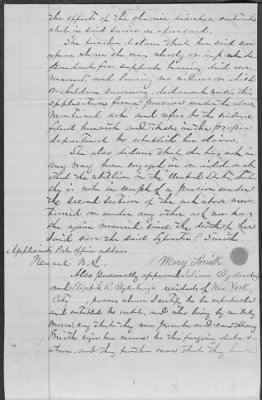 the effects of the chronic diarrhea contracted
while in said service as aforesaid.
She further declares that her said son
upon whom she was wholly or in part de-
pendent for support having died un-
married, and leaving no widow or child
or children surviving declarant makes this
application for a pension under the above
mentioned act and refers to the evidence
filed herewith and that in the proper
department to establish her claim.
She also declares that she has not in
any way been engaged in or aided or abet-
ted the rebellion in the United States, that
she is not in receipt of a pension under
the second section of the act above men-
tioned or under any other act nor has
she again married since the death of her
said son the said Sylvester Smith
Applicants Post office address
Newark N.J. Mary Smith
Also personally appeared
and Elizabeth residents of New York
City, persons whom I certify to be respectable
and entitled to credit, and who being by me duly
sworn, say that they were present and saw Mary
Smith sign her name to the foregoing decla-
ration, and they further swear that they have